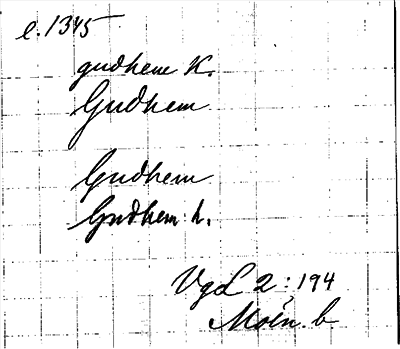 e. 1345
gudhem K.
Gudhem
Gudhem
Gudhem h.
VgL 2: 194